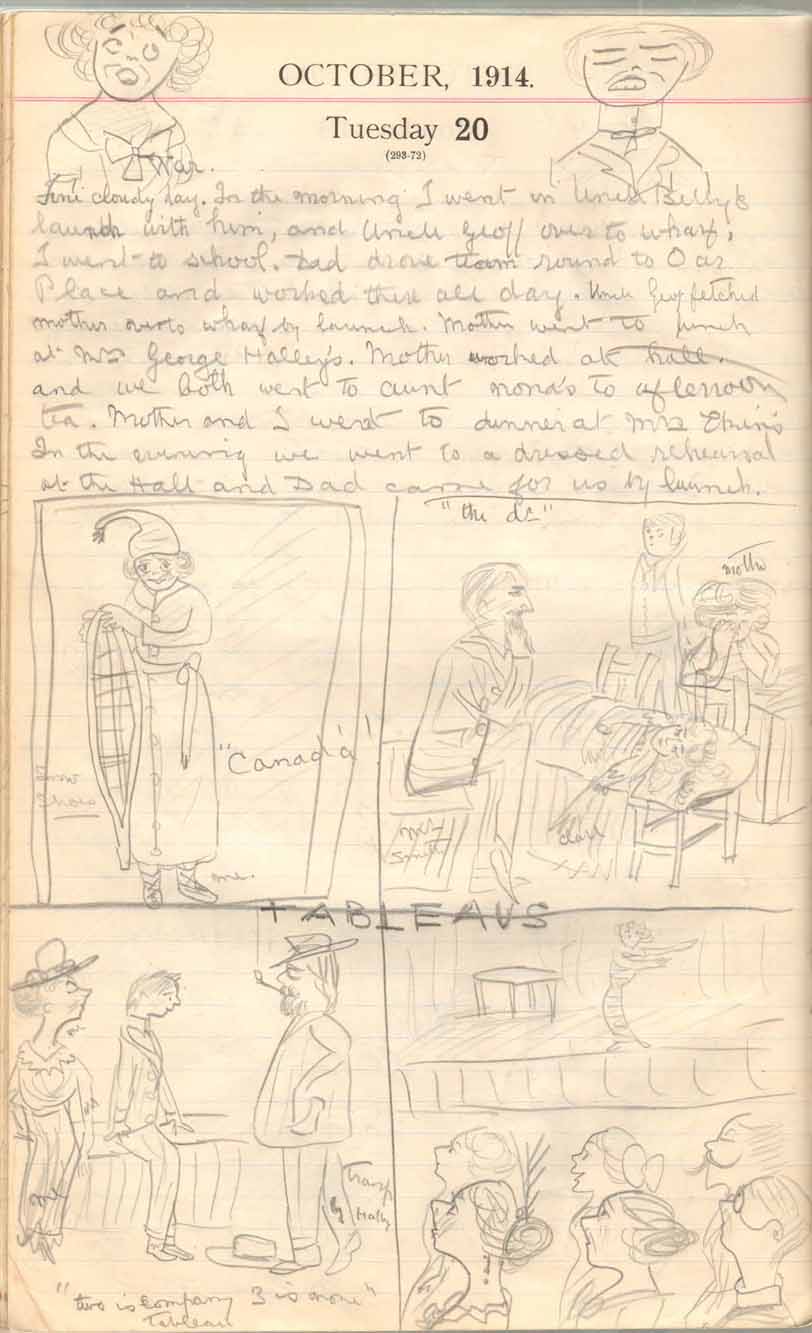 OCTOBER, 1914.
Tuesday 20
(293-72)
War.
Fine cloudy day. In the morning I went in Uncle Billy's
launch with him, and Uncle Geoff over to wharf,
I went to school. Dad drove team round to O az
Place and worked there all day. Uncle Geof fetched
mother over to wharf by launch. Mother went to lunch
at Mrs George Halley's. Mother worked at hall.
and we both went to aunt nona's to afternoon
tea. Mother and I went to dinner at Mrs
In the evening we went to a dressed rehearsal
at the Hall and Dad came for us by launch.
"the dr"
mother
"Canada"
Snow
Shoes
me.
Mr
Smith
TABLEAUS
me
Halley
"two is company 3 is none"
Tableau